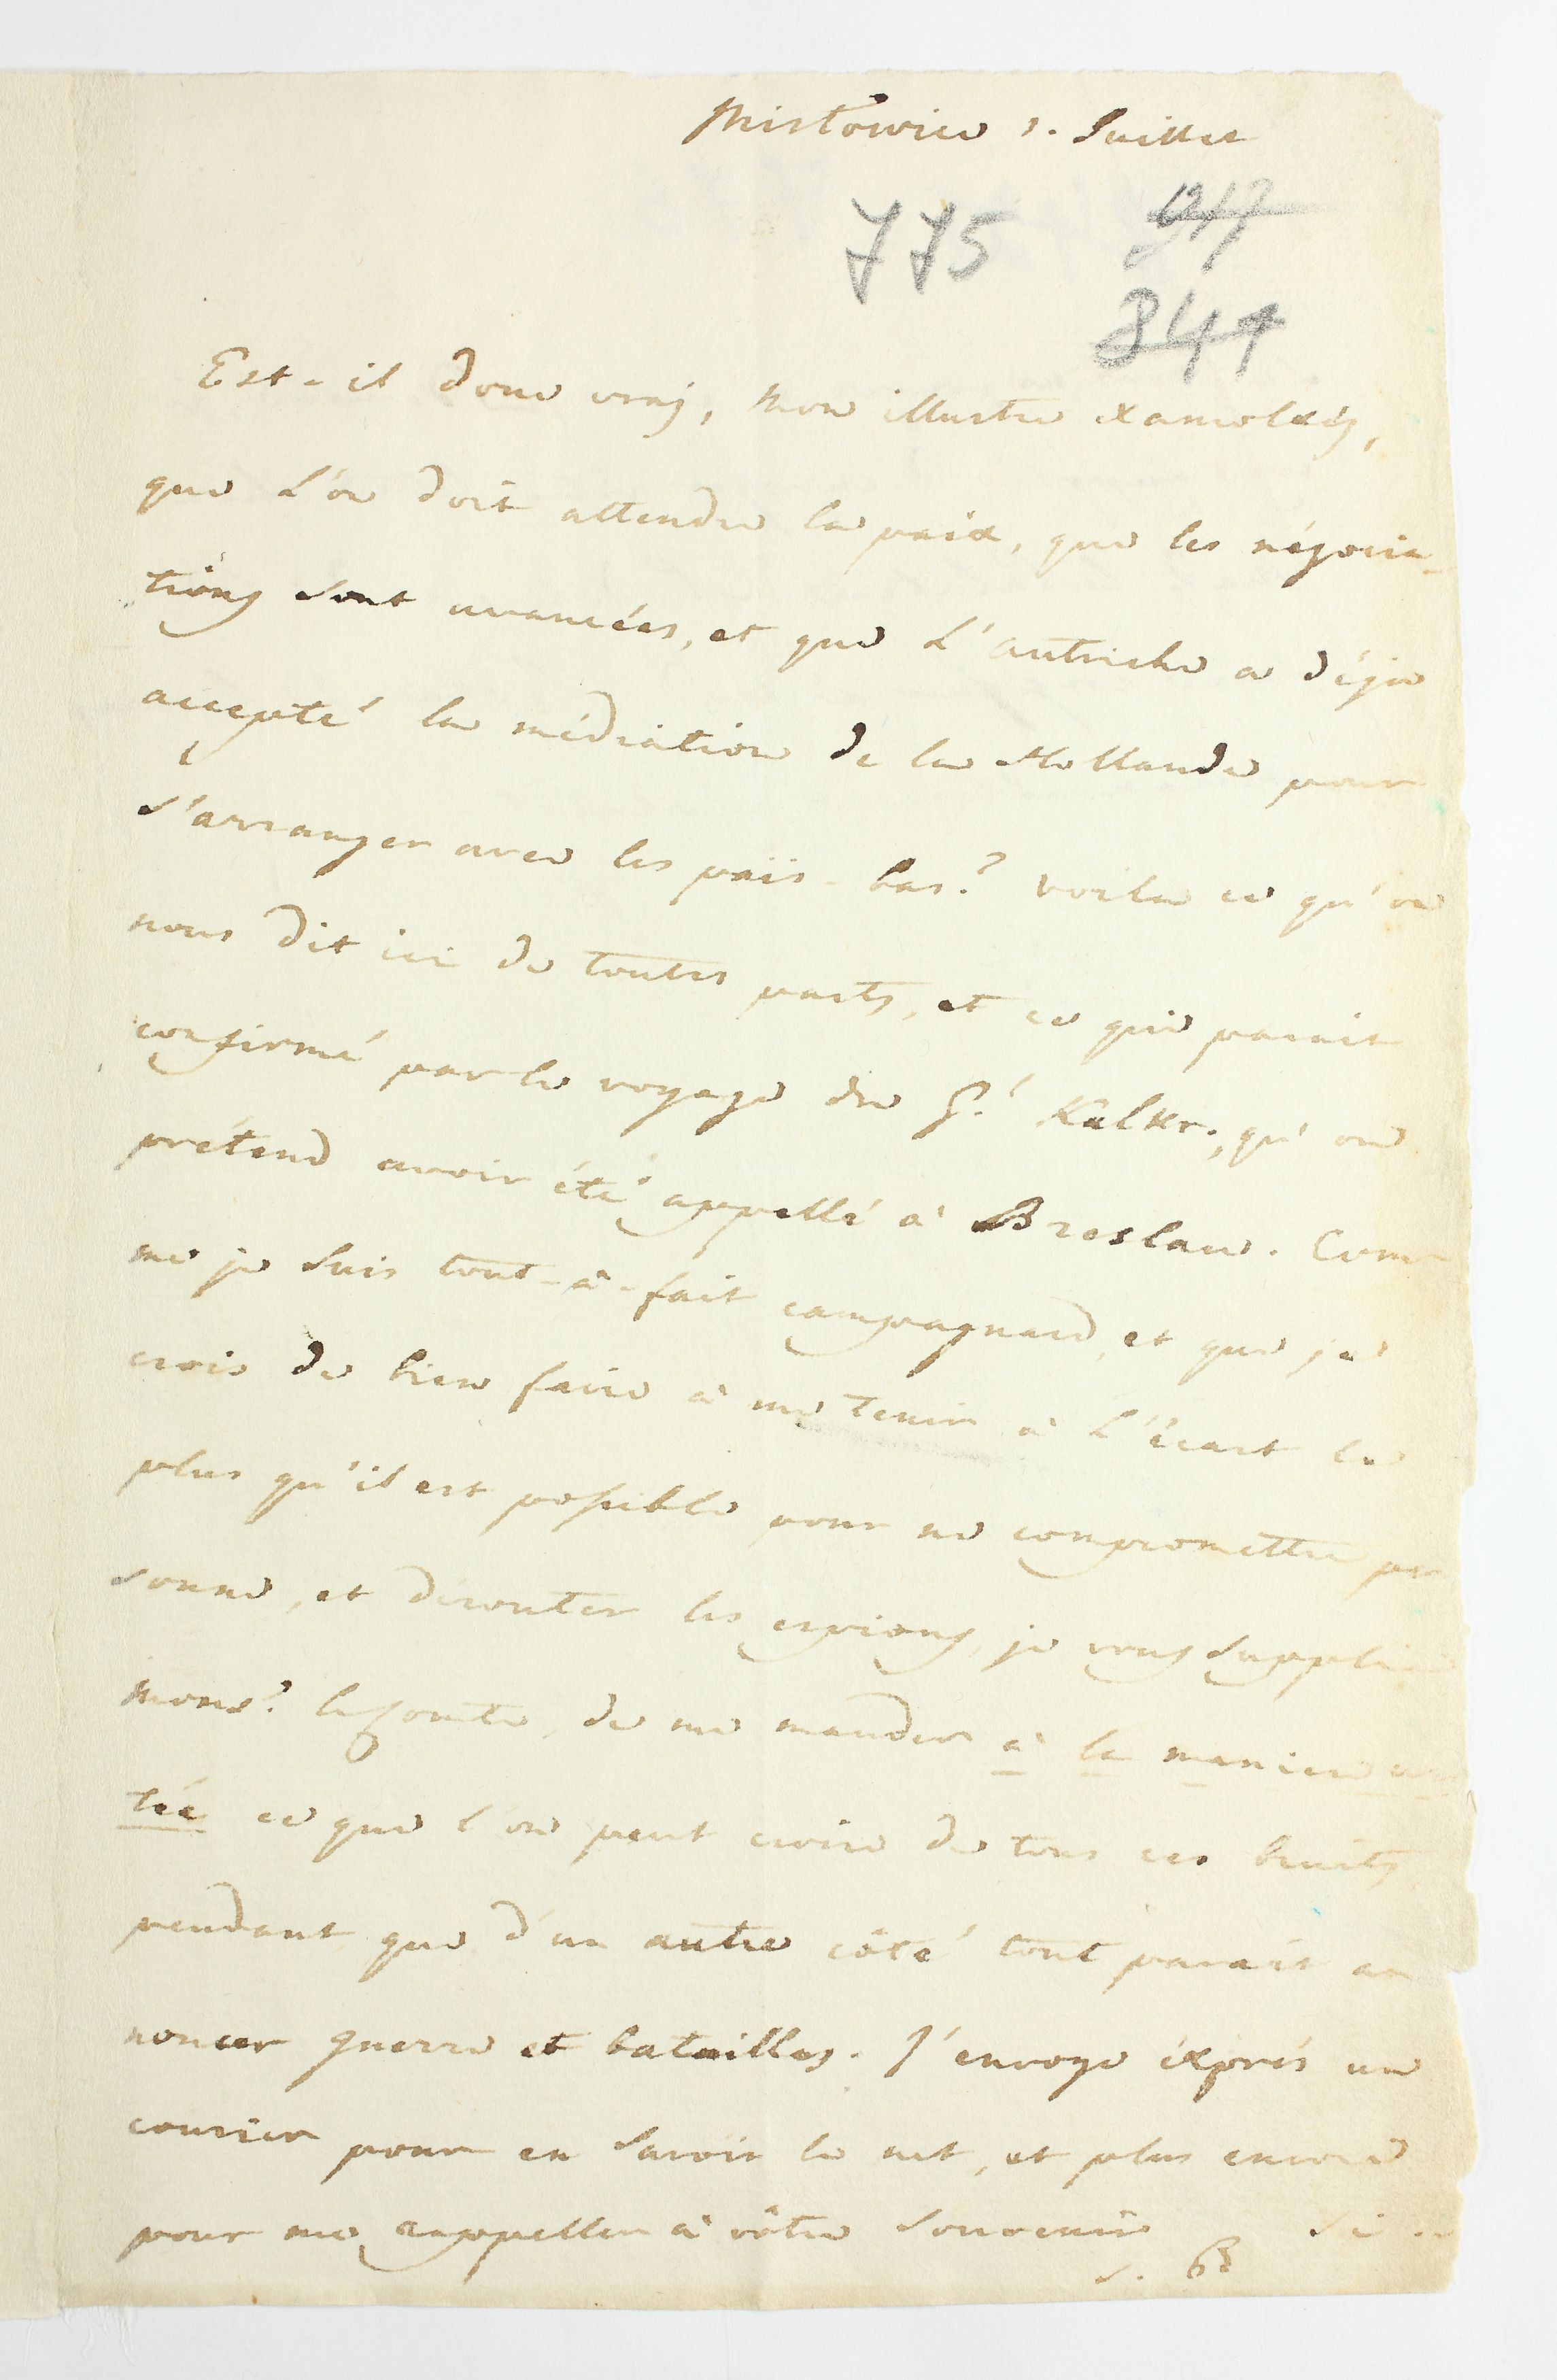 Mistowice 1. Juillet
775
841
Est-il donc vraj, mon illustre
que l'on doit attendre la paix, que les négocia-
tions sont avancées, et que L'autriche a déja
accepté la médiation de la Hollande pour
s'arranger avec les païs-bas? voila ce qu'on
nous dit ici de toutes parts, et ce qui parait
confirmé par le voyage du Gl Kalkr:, qu'on
prétend avoir été appellé à Breslau. Com-
me je suis tout-à-fait campagnard, et que je
crois de bien faire à me tenir à l'écart le
plus qu'il est possible pour ne compromettre per
sonne, et dérouter les espions, je vous supplie
Monsr le Comte, de me mander à la maniere
tée ce que l'on peut croire de tous ces bruits
pendant que d'un autre côté tout parait an
noncer guerre et batailles. J'envoye éxprés un
courier pour en savoir le net, et plus encore
pour me rappeller à vôtre souvenir